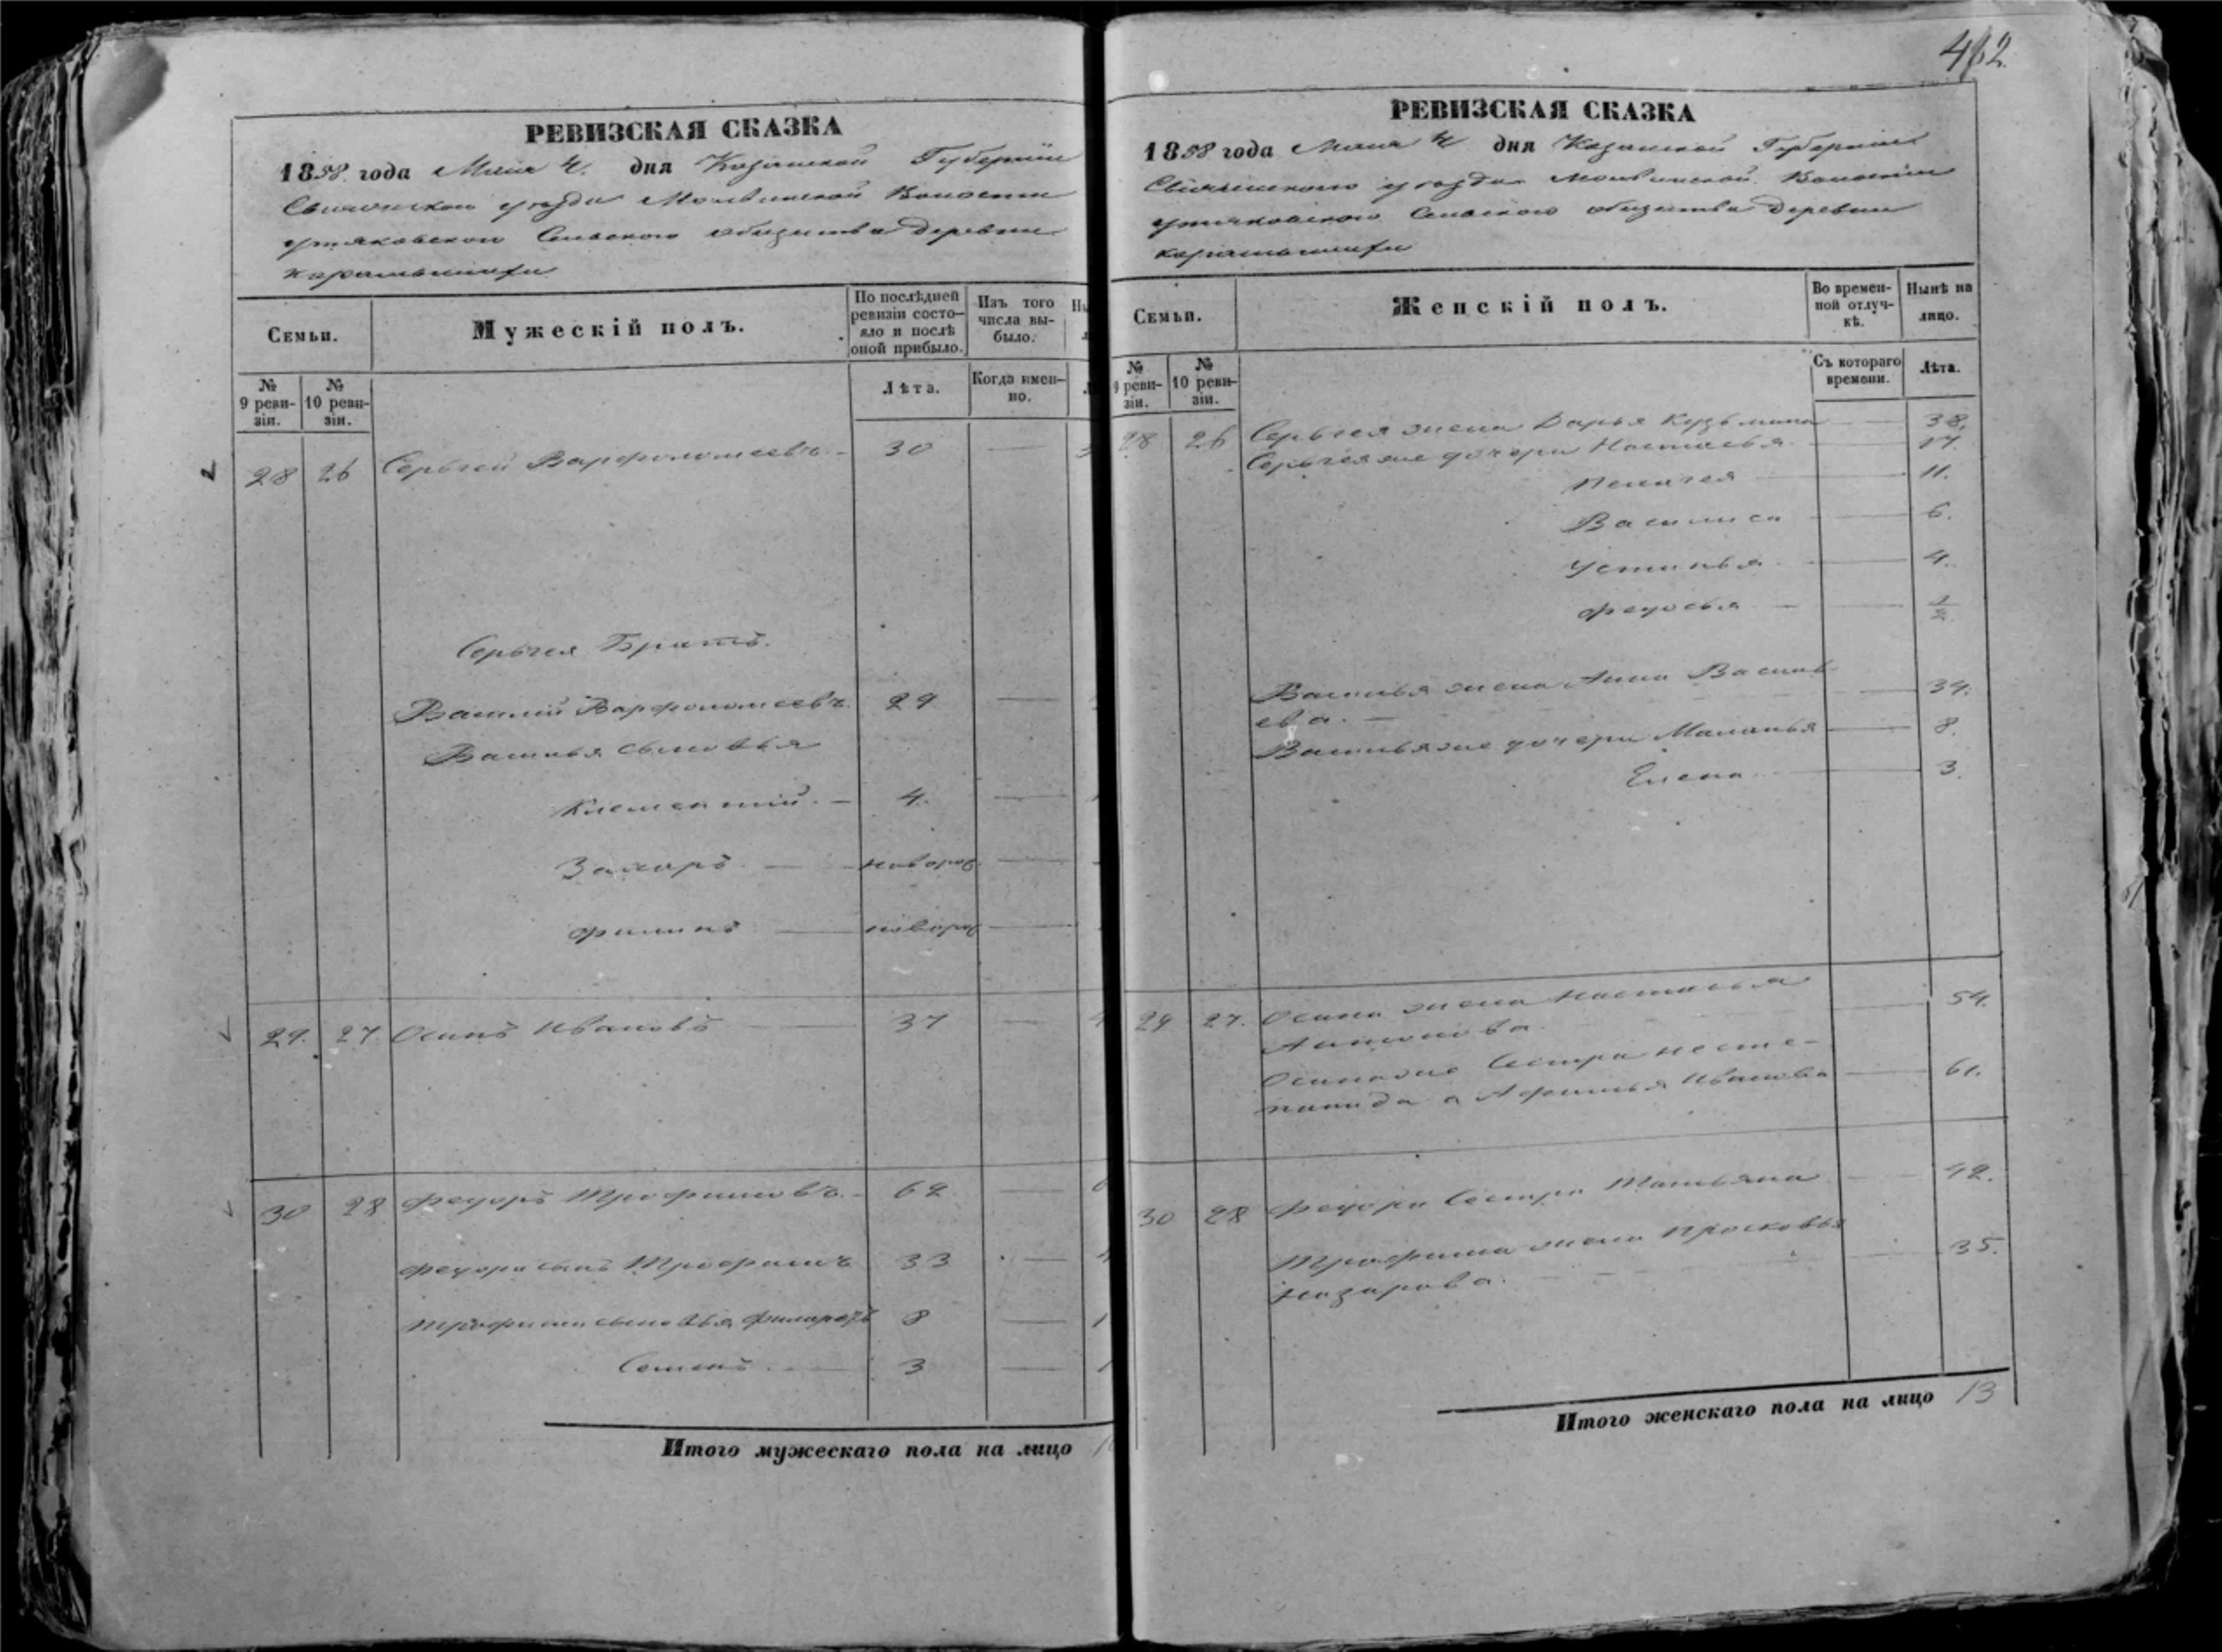 462.
РЕВИЗСКАЯ СКАЗКА
1858 года Маия 4. дня Казанской Губерніи
Свіяжскаго уезда Молвинской Волости
утяковскаго Сельского общества деревни
Семьи.
Мужескій полъ.
По послѣдней ревизіи состо-яло и послѣ оной прибыло.
Изъ того числа вы-было.
№ 9 реви-зіи.
№ 10 реви-зіи.
Лѣта.
Когда имен-но.
28 26 Сергѣй Варфоломеевъ. 30
Сергея Братъ.
Василій Варфоломеевъ 29
Василья сыновья
Климентий. 4.
Захаръ новорож
филипъ новорож
29. 27. Осипъ Ивановъ 37
30 28 федоръ Трофимовъ. 62
федора сынъ Трофимъ 33
трофима сыновья филаретъ 8
Семенъ 3
Итого мужескаго пола на лицо
РЕВИЗСКАЯ СКАЗКА
1858 года Маия 4 дня Казанской Губерніи
Свіяжскаго уезда Молвинской Волости
утяковскаго Сельского общества деревни
Семьи.
Женскій полъ.
Во времен-ной отлуч-кѣ.
Нынѣ на лицо.
№ 9 реви-зіи.
№ 10 реви-зіи.
Съ котораго времени.
Лѣта.
28 26 Сергея жена Дарья Кузьмина 38.
Сергея же дочери Настасья 17.
Пелагея 11.
Василиса 6.
Устинья 4.
федосья ½
Василья жена Анна Василь-
ева. 34.
Василья же дочери Маланья 8.
Елена 3.
29 27. Осипа жена Настасья 54.
Антонова
Осипа же Сестра
Ивановы 61.
30 28 федора Сестра Татьяна 42.
Трофима жена Прасковья 35.
Назарова.
Итого женскаго пола на лицо 13